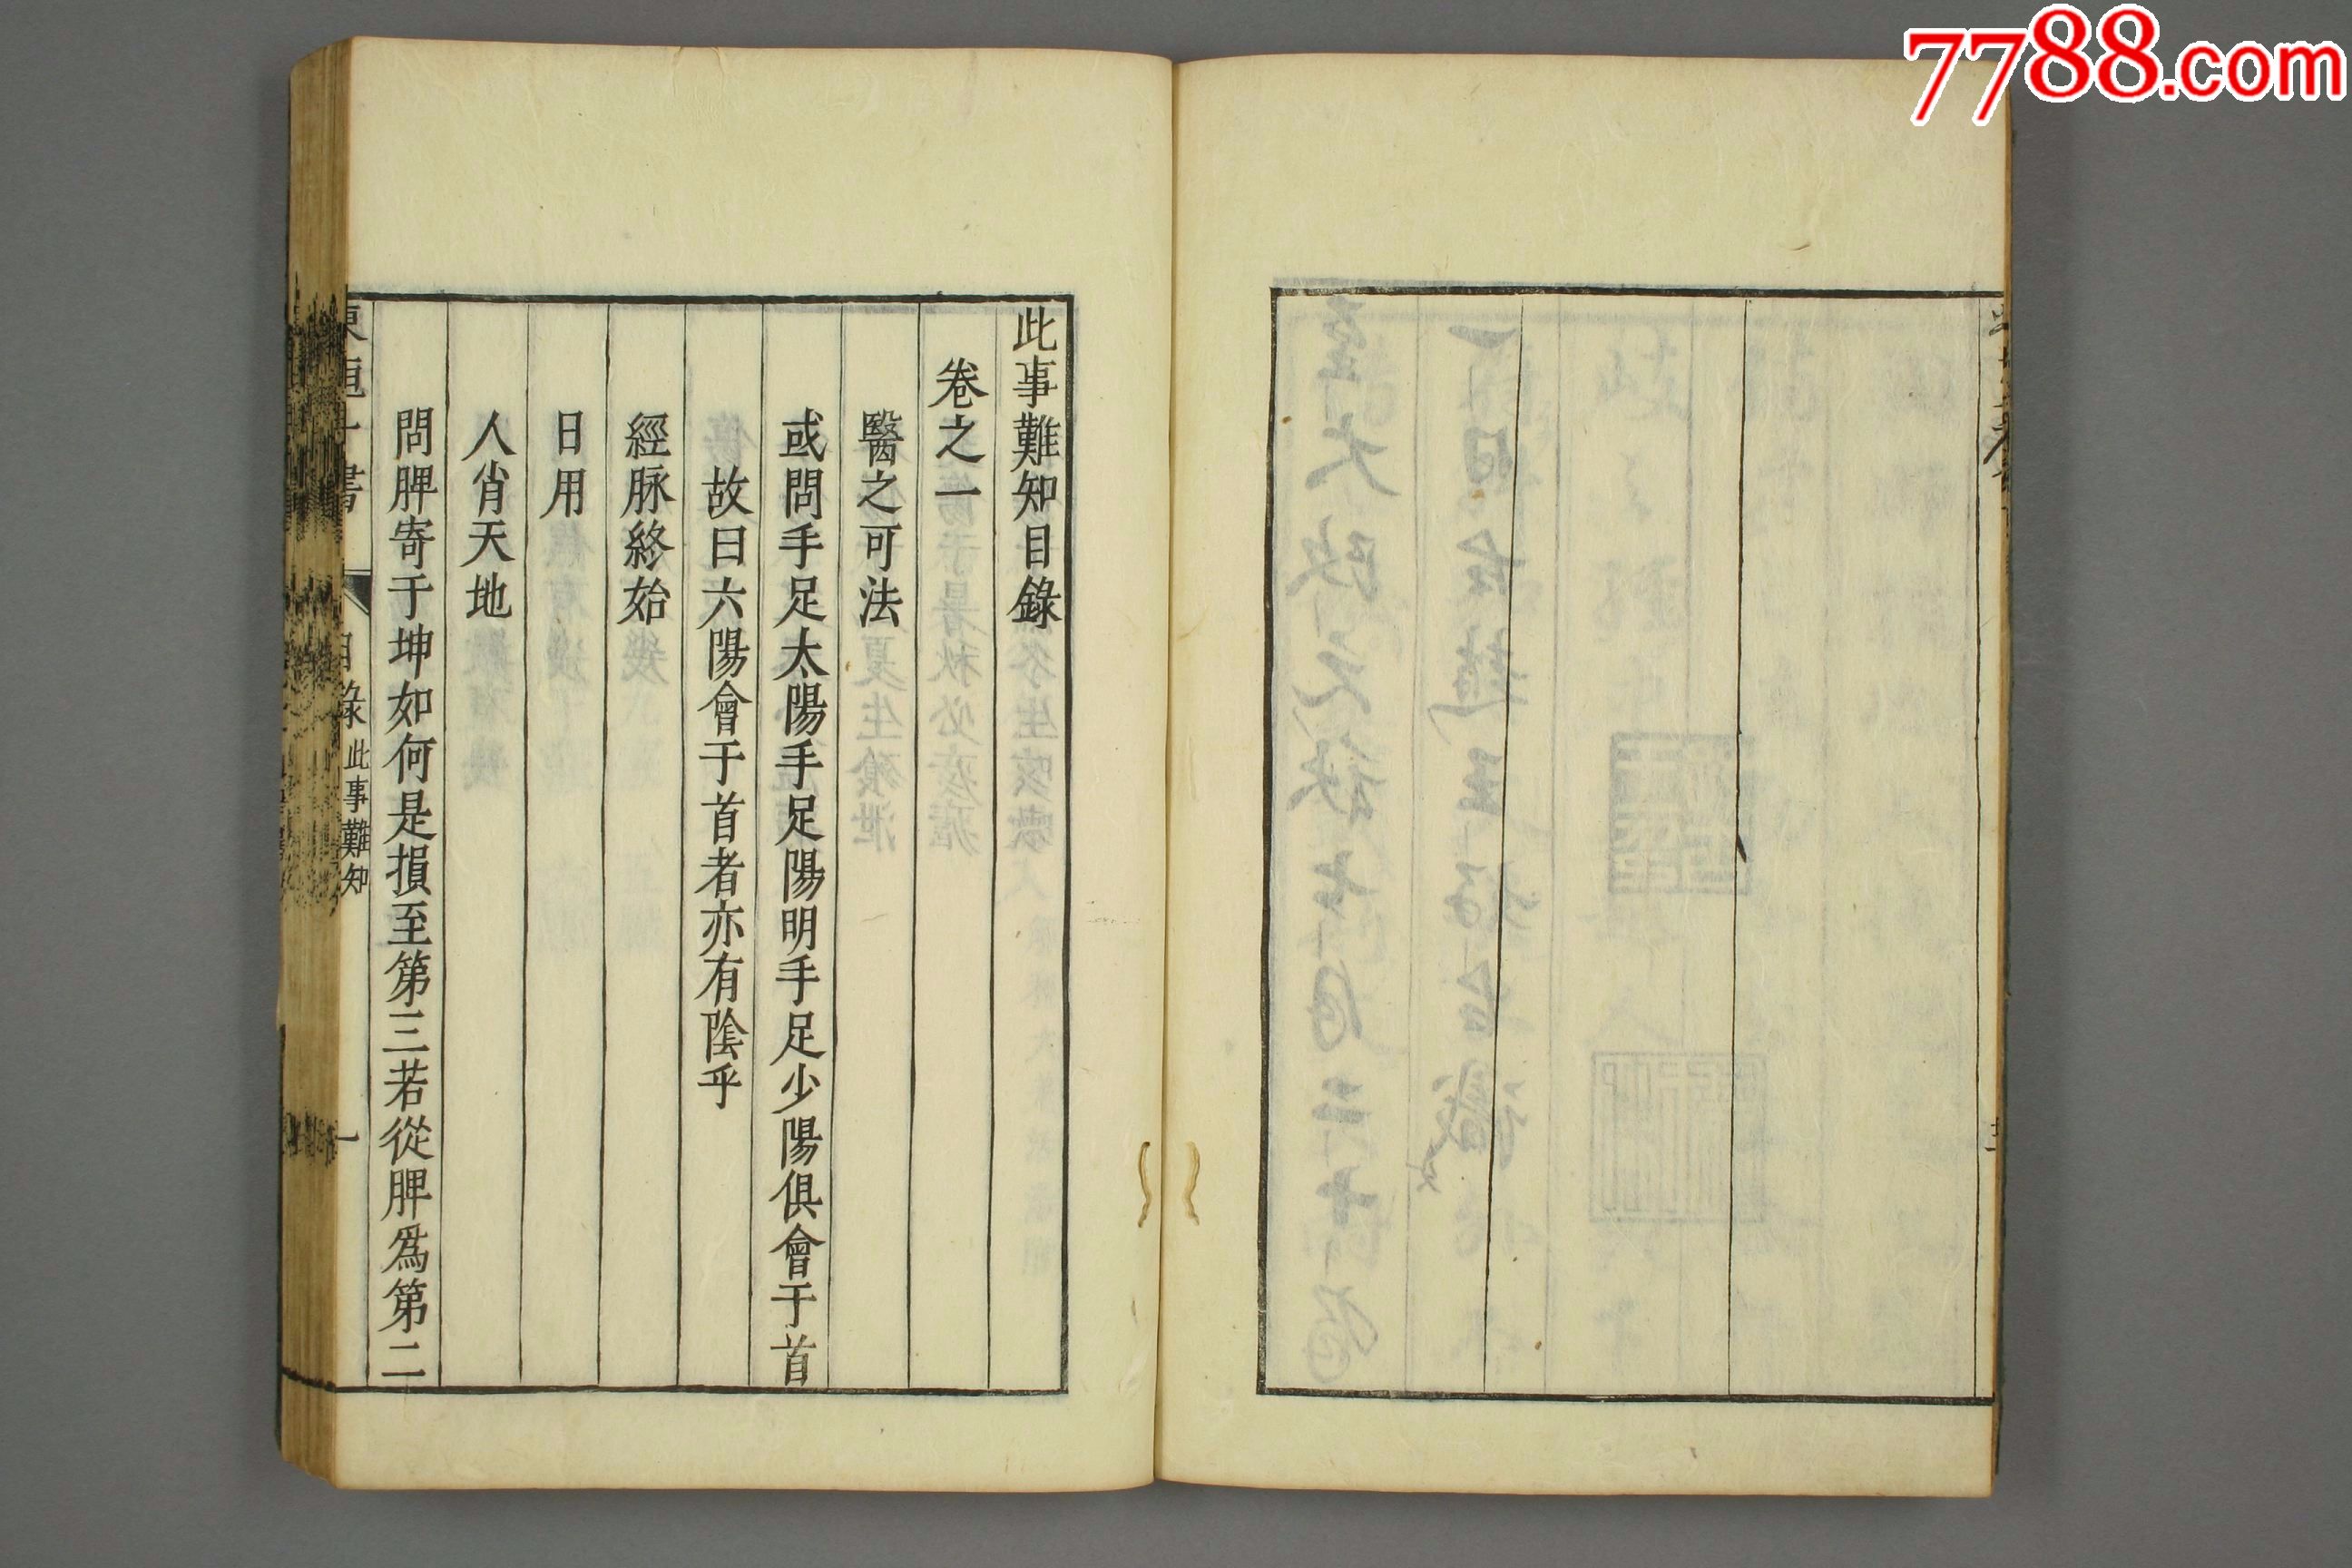 7788.com
此事難知目錄
卷之一
醫之可法
或問手足太陽手足陽明手足少陽俱會于首
故曰六陽會于首者亦有陰乎
經脉終始
日用
人肖天地
問脾寄于坤如何是損至第三若從脾爲第二
東垣十書 目錄 此事難知 一